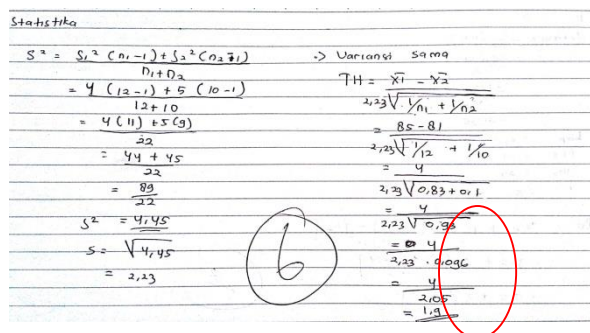 Statistika
S² = S₁² (n₁-1) + S₂² (n₂-1)
n₁+n₂
= 4 (12-1) + 5 (10-1)
12+10
= 4(11) + 5(9)
22
= 44 + 45
22
= 89
22
S² = 4,45
S = √4,45
= 2,23
6
-> Variansi sama
TH = x̄1 - x̄2
2,23 √1/n1 + 1/n2
= 85-81
2,23 √1/12 + 1/10
= 4
2,23 √0,83+0,1
= 4
2,23 √0,93
= 4
2,23 . 0,096
= 4
2,05
= 1,9